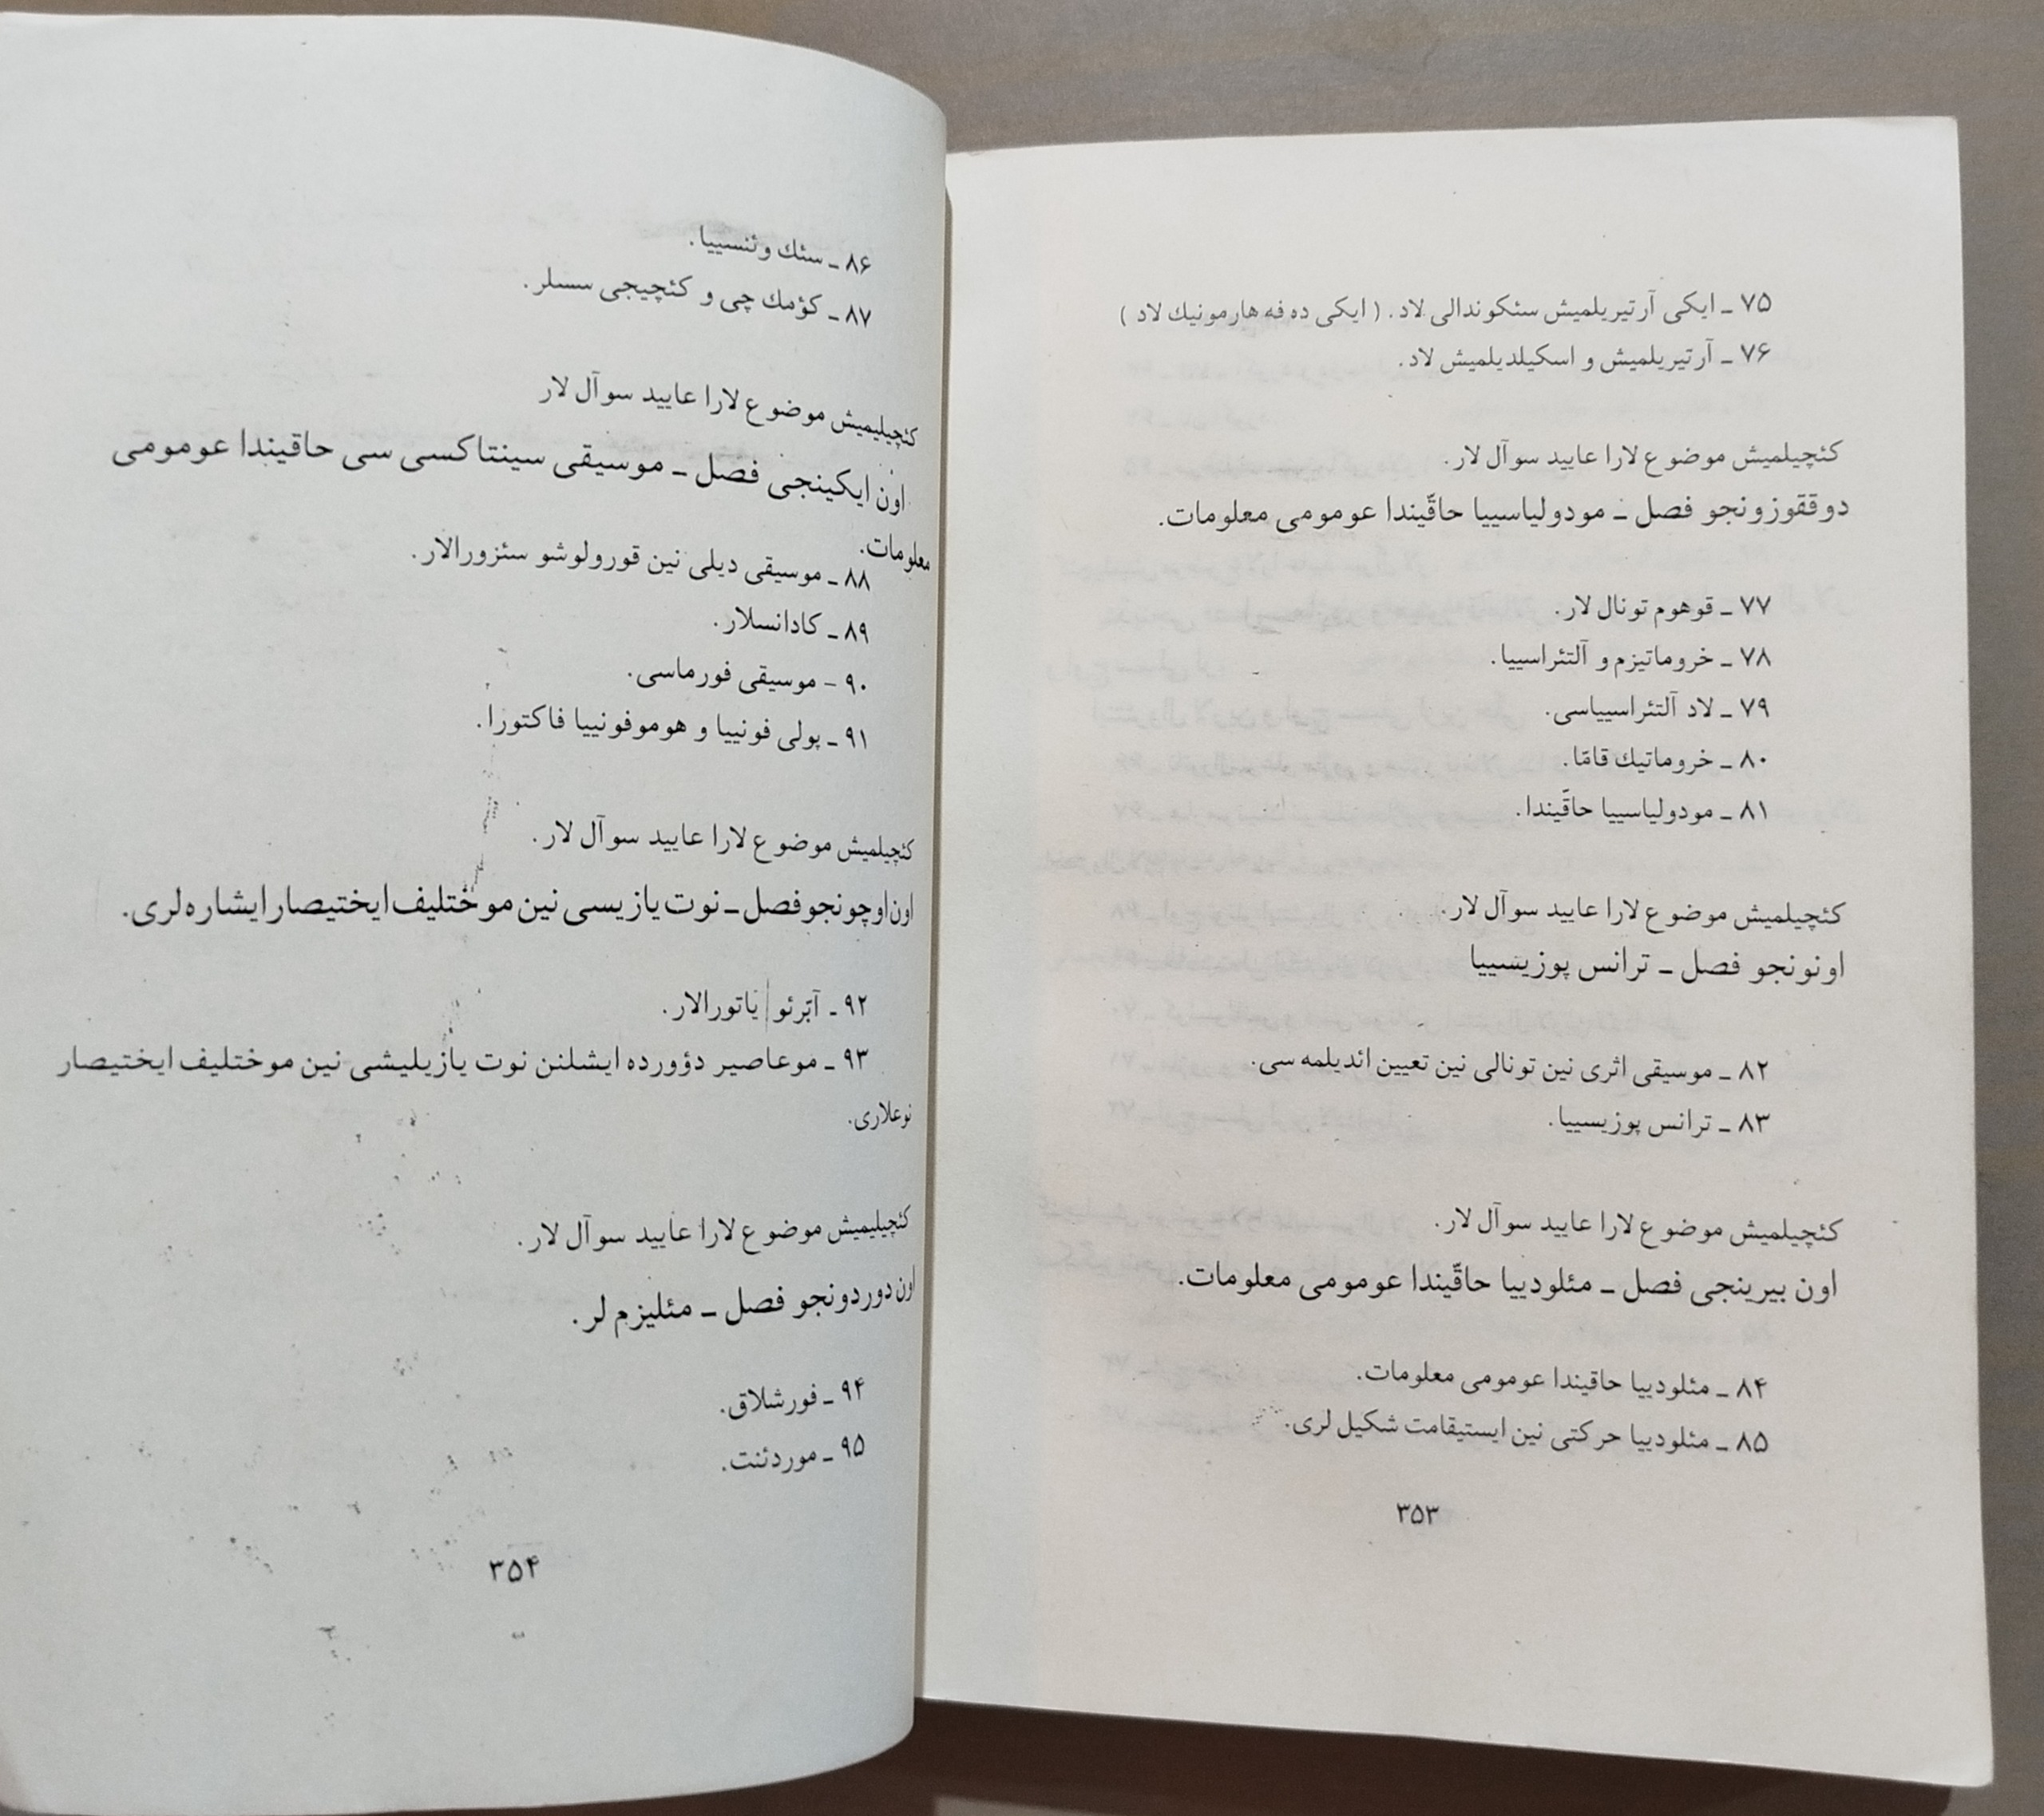 ۷۵ ـ ایکی آرتیریلمیش سئکوندالی لاد. ( ایکی ده فه هارمونیك لاد )
۷۶ ـ آرتیریلمیش و اسکیلدیلمیش لاد.
کئچیلمیش موضوع لارا عایید سوآل لار.
دوققوزونجو فصل ـ مودولیاسییا حاقّیندا عومومی معلومات.
۷۷ ـ قوهوم تونال لار.
۷۸ ـ خروماتیزم و آلتئراسییا.
۷۹ ـ لاد آلتئراسییاسی.
۸۰ ـ خروماتیك قامّا.
۸۱ ـ مودولیاسییا حاقّیندا.
کئچیلمیش موضوع لارا عایید سوآل لار.
اونونجو فصل ـ ترانس پوزیسییا
۸۲ ـ موسیقی اثری نین تونالی نین تعیین ائدیلمه سی.
۸۳ ـ ترانس پوزیسییا.
کئچیلمیش موضوع لارا عایید سوآل لار.
اون بیرینجی فصل ـ مئلودییا حاقّیندا عومومی معلومات.
۸۴ ـ مئلودییا حاقیندا عومومی معلومات.
۸۵ ـ مئلودییا حرکتی نین ایستیقامت شکیل لری.
۳۵۳
۸۶ ـ سئك وئنسییا.
۸۷ ـ کؤمك چی و کئچیجی سسلر.
کئچیلیمیش موضوع لارا عایید سوآل لار
اون ایکینجی فصل ـ موسیقی سینتاکسی سی حاقیندا عومومی
معلومات.
۸۸ ـ موسیقی دیلی نین قورولوشو سئزورالار.
۸۹ ـ کادانسلار.
۹۰ - موسیقی فورماسی.
۹۱ ـ پولی فونییا و هوموفونییا فاکتورا.
کئچیلمیش موضوع لارا عایید سوآل لار.
اون اوچونجو فصل ـ نوت یازیسی نین موختلیف ایختیصار ایشاره لری.
۹۲ ـ آبّرئو یاتورالار.
۹۳ ـ موعاصیر دؤورده ایشلنن نوت یازیلیشی نین موختلیف ایختیصار
نوعلاری.
کئچیلیمیش موضوع لارا عایید سوآل لار.
اون دوردونجو فصل ـ مئلیزم لر.
۹۴ ـ فورشلاق.
۹۵ ـ موردئنت.
۳۵۴